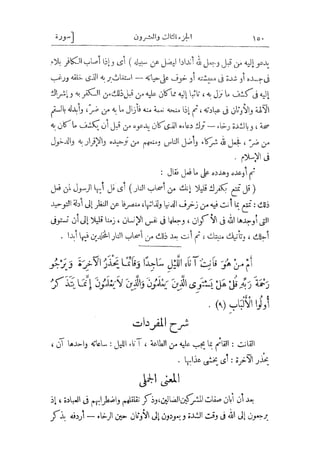 ١٥٠ الجزء الثالث والعشرون [سورة
يدعو إليه من قبل وجعل لله أندادا ليضل عن سبيله ) أى وإذا أصاب الكافر بلاء
فى جسده أو شدة فى معيشته أو خوف على حياته – استغاث بربه الذى خلقه ورغب
إليه فى كشف ما نزل به ، تائبا إليه مما كان عليه من قبل ذلك من الكفر به وإشراك
الآلهة والأوثان فى عبادته ، ثم إذا منحه نعمة منه فأزال ما به من ضر ، وأبدله بالسقم
صحة ، وبالشدة رخاء – ترك دعاءه الذى كان يدعوه من قبل أن يكشف ما كان به
من ضر ، فجعل لله شركاء ، وأضل الناس ومنعهم من توحيده والإقرار به والدخول
فى الإسلام .
ثم أوعده وهدده على ما فعل فقال :
( قل تمتع بكفرك قليلا إنك من أصحاب النار ) أى قل أيها الرسول لمن فعل
ذلك : تمتع بما أنت فيه من زخرف الدنيا ولذاتها ، منصرفا عن النظر إلى أدلة التوحيد
التى أوجدها الله فى الأكوان ، وجعلها فى نفس الإنسان ، زمنا قليلا إلى أن تستوفى
أجلك ، وتأتيك منيتك ، ثم أنت بعد ذلك من أصحاب النار المخلدين فيها أبدا .
أَمَّنْ هُوَ قَانِتٌ آنَاءَ اللَّيْلِ سَاجِدًا وَقَائِمًا يَحْذَرُ الْآخِرَةَ وَيَرْجُو
رَحْمَةَ رَبِّهِ قُلْ هَلْ يَسْتَوِى الَّذِينَ يَعْلَمُونَ وَالَّذِينَ لَا يَعْلَمُونَ إِنَّمَا يَتَذَكَّرُ
أُولُوا الْأَلْبَابِ (٩) .
شرح المفردات
القانت : القائم بما يجب عليه من الطاعة ، آناء الليل : ساعاته واحدها آن ،
يحذر الآخرة : أى يخشى عذابها .
المعنى الجملى
بعد أن أبان صفات المشركين الضالين ، وذكر تقلقلهم واضطرابهم فى العبادة ، إذ
يرجعون إلى الله فى وقت الشدة ويعودون إلى الأوثان حين الرخاء – أردفه بذكر